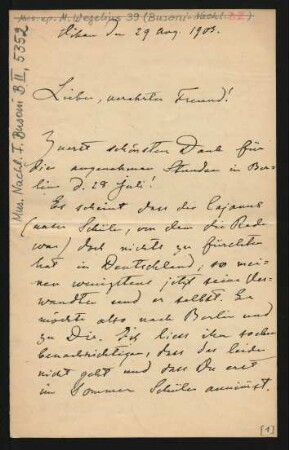 Mus. ep. M. Wegelius 39 (Busoni-Nachl. B II)
Mus. Nachl. F. Busoni B II, 5352
den 29 Aug. 1903.
Lieber, verehrter Freund!
Zuerst schönsten Dank für
die angenehmen Stunden in Ber-
lin d. 28 Juli!
Es scheint dass der Cajanus
(unser Schüler, von dem die Rede
war) doch nichts zu fürchten
hat in Deutschland; so mei-
nen wenigstens jetzt seine Ver-
wandten und er selbst. Er
möchte also nach Berlin und
zu Dir. Ich liess ihn soeben
benachrichtigen, dass das leider
nicht geht und dass Du erst
im Sommer Schüler annimst.
[1]